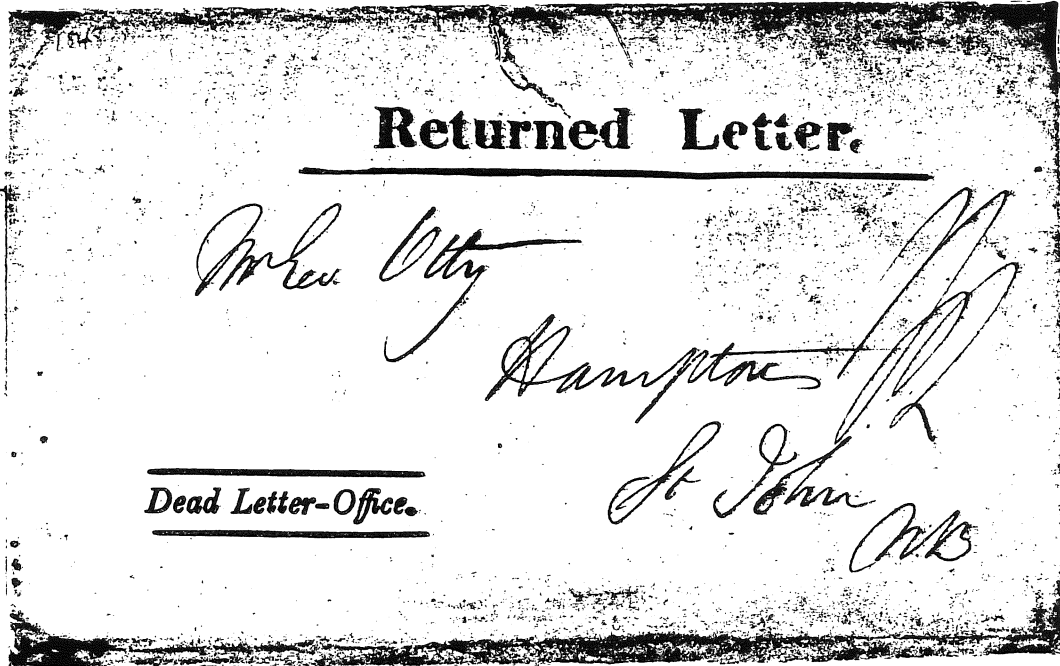 1845
Returned Letter.
Otty
Hampton
St John
N.B
Dead Letter-Office.